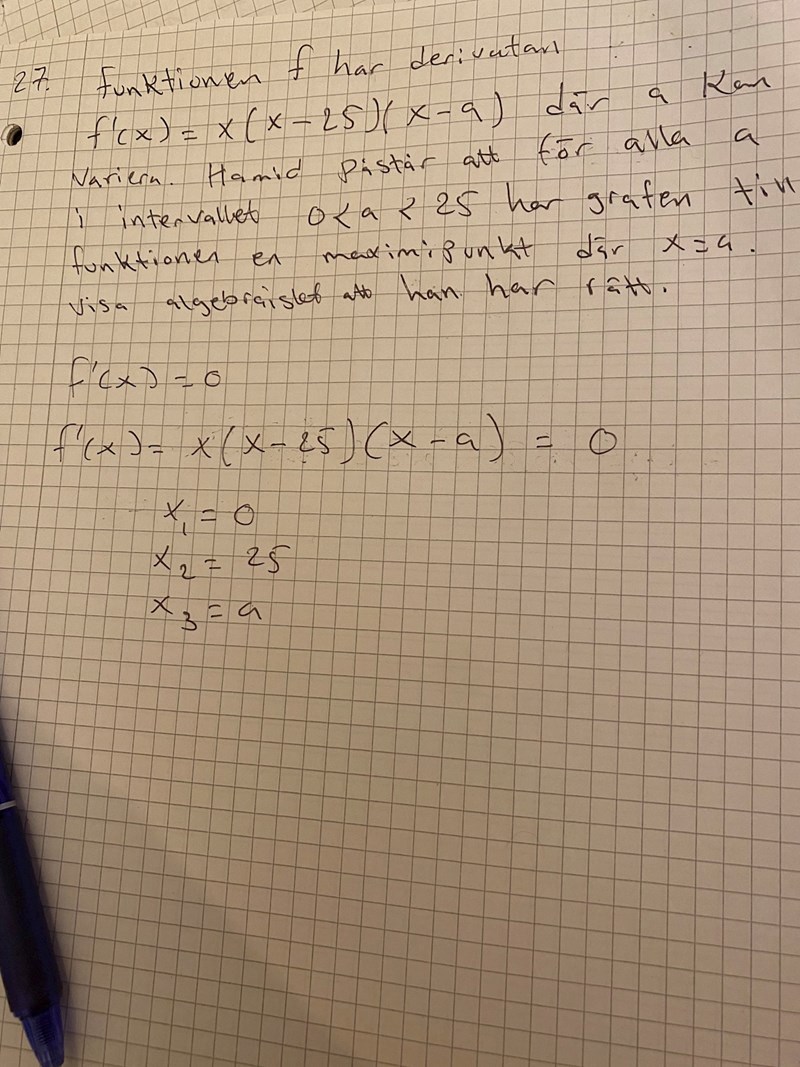 27. Funktionen f har derivatan
f'(x) = x(x-25)(x-a) där a kan
variera. Hamid påstår att för alla a
i intervallet 0<a<25 har grafen till
funktionen en maximipunkt där x=a.
visa algebraiskt att han har rätt.
f'(x) = 0
f'(x) = x(x-25)(x-a) = 0
x₁ = 0
x₂ = 25
x₃ = a